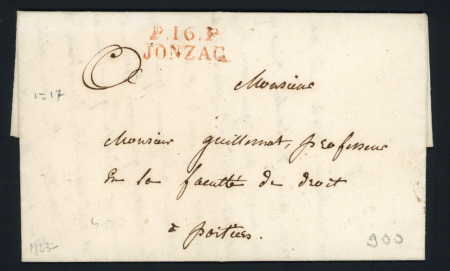 P.16.P
JONZAC.
1=17
Monsieur
Monsieur guillemot, professeur
En la faculté de droit
à poitiers.
1823
900